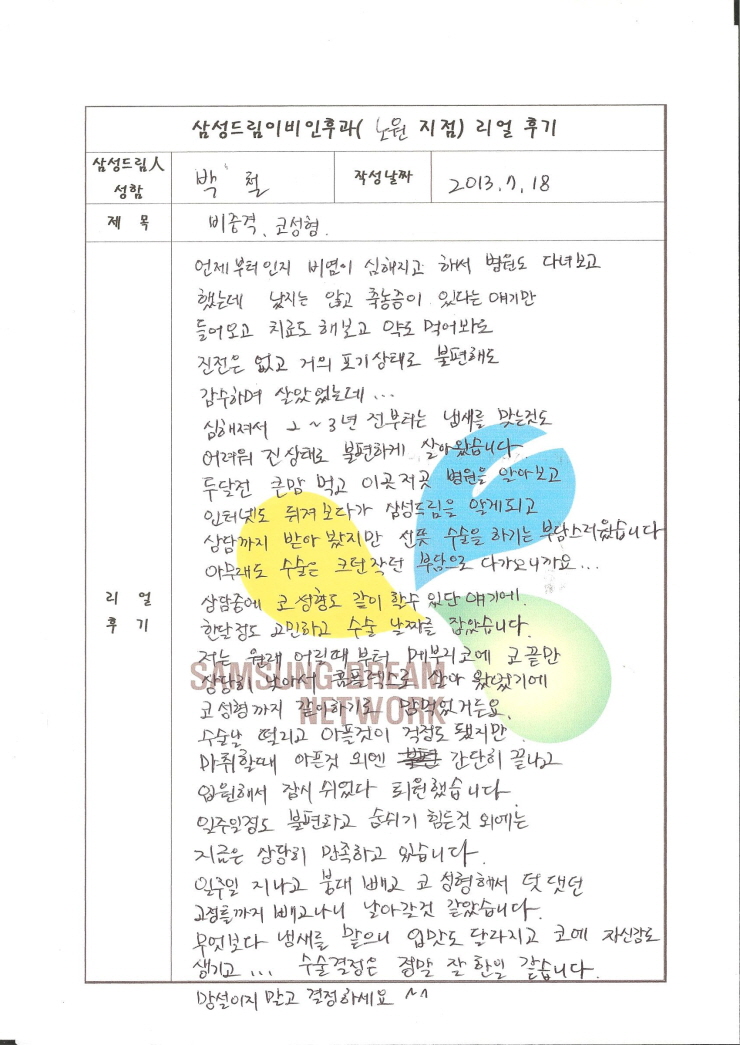 삼성드림이비인후과( 노원 지점) 리얼 후기
삼성드림人 성함
박 철
작성날짜
2013. 7. 18
제 목
비중격, 코성형.
리 얼 후 기
언제부터인지 비염이 심해지고 해서 병원도 다녀보고
했는데 낫지는 않고 축농증이 있다는 얘기만
들어오고 치료도 해보고 약도 먹어봐도
진전은 없고 거의 포기상태로 불편해도
감수하며 살았었는데...
심해져서 2~3년 전부터는 냄새를 맞는것도
어려워 진상태로 불편하게 살아왔습니다.
두달전 큰맘 먹고 이곳저곳 병원을 알아보고
인터넷도 뒤져보다가 삼성드림을 알게되고
상담까지 받아 봤지만 선뜻 수술을 하기는 부담스러웠습니다
아무래도 수술은 크던작던 부담으로 다가오니까요...
상담중에 코성형도 같이 할수 있단 얘기에.
한달정도 고민하고 수술 날짜를 잡았습니다.
저는 원래 어릴때부터 메부리코에 코끝만
상당히 낮아서 콤플렉스로 살아 왔었기에
코성형까지 같이하기로 맘먹었거든요.
수술날 떨리고 아플것이 걱정도 됐지만
마취할때 아픈것 외엔 간단히 끝나고
입원해서 잠시 쉬었다 퇴원했습니다
일주일정도 불편하고 숨쉬기 힘든것 외에는
지금은 상당히 만족하고 있습니다.
일주일 지나고 붕대 빼고 코 성형해서 덧댔던
고정틀까지 빼고나니 날아갈것 같았습니다.
무엇보다 냄새를 맡으니 입맛도 달라지고 코에 자신감도
생기고... 수술결정은 정말 잘 한일 같습니다.
망설이지 말고 결정하세요 ^^
SAMSUNG DREAM
NETWORK